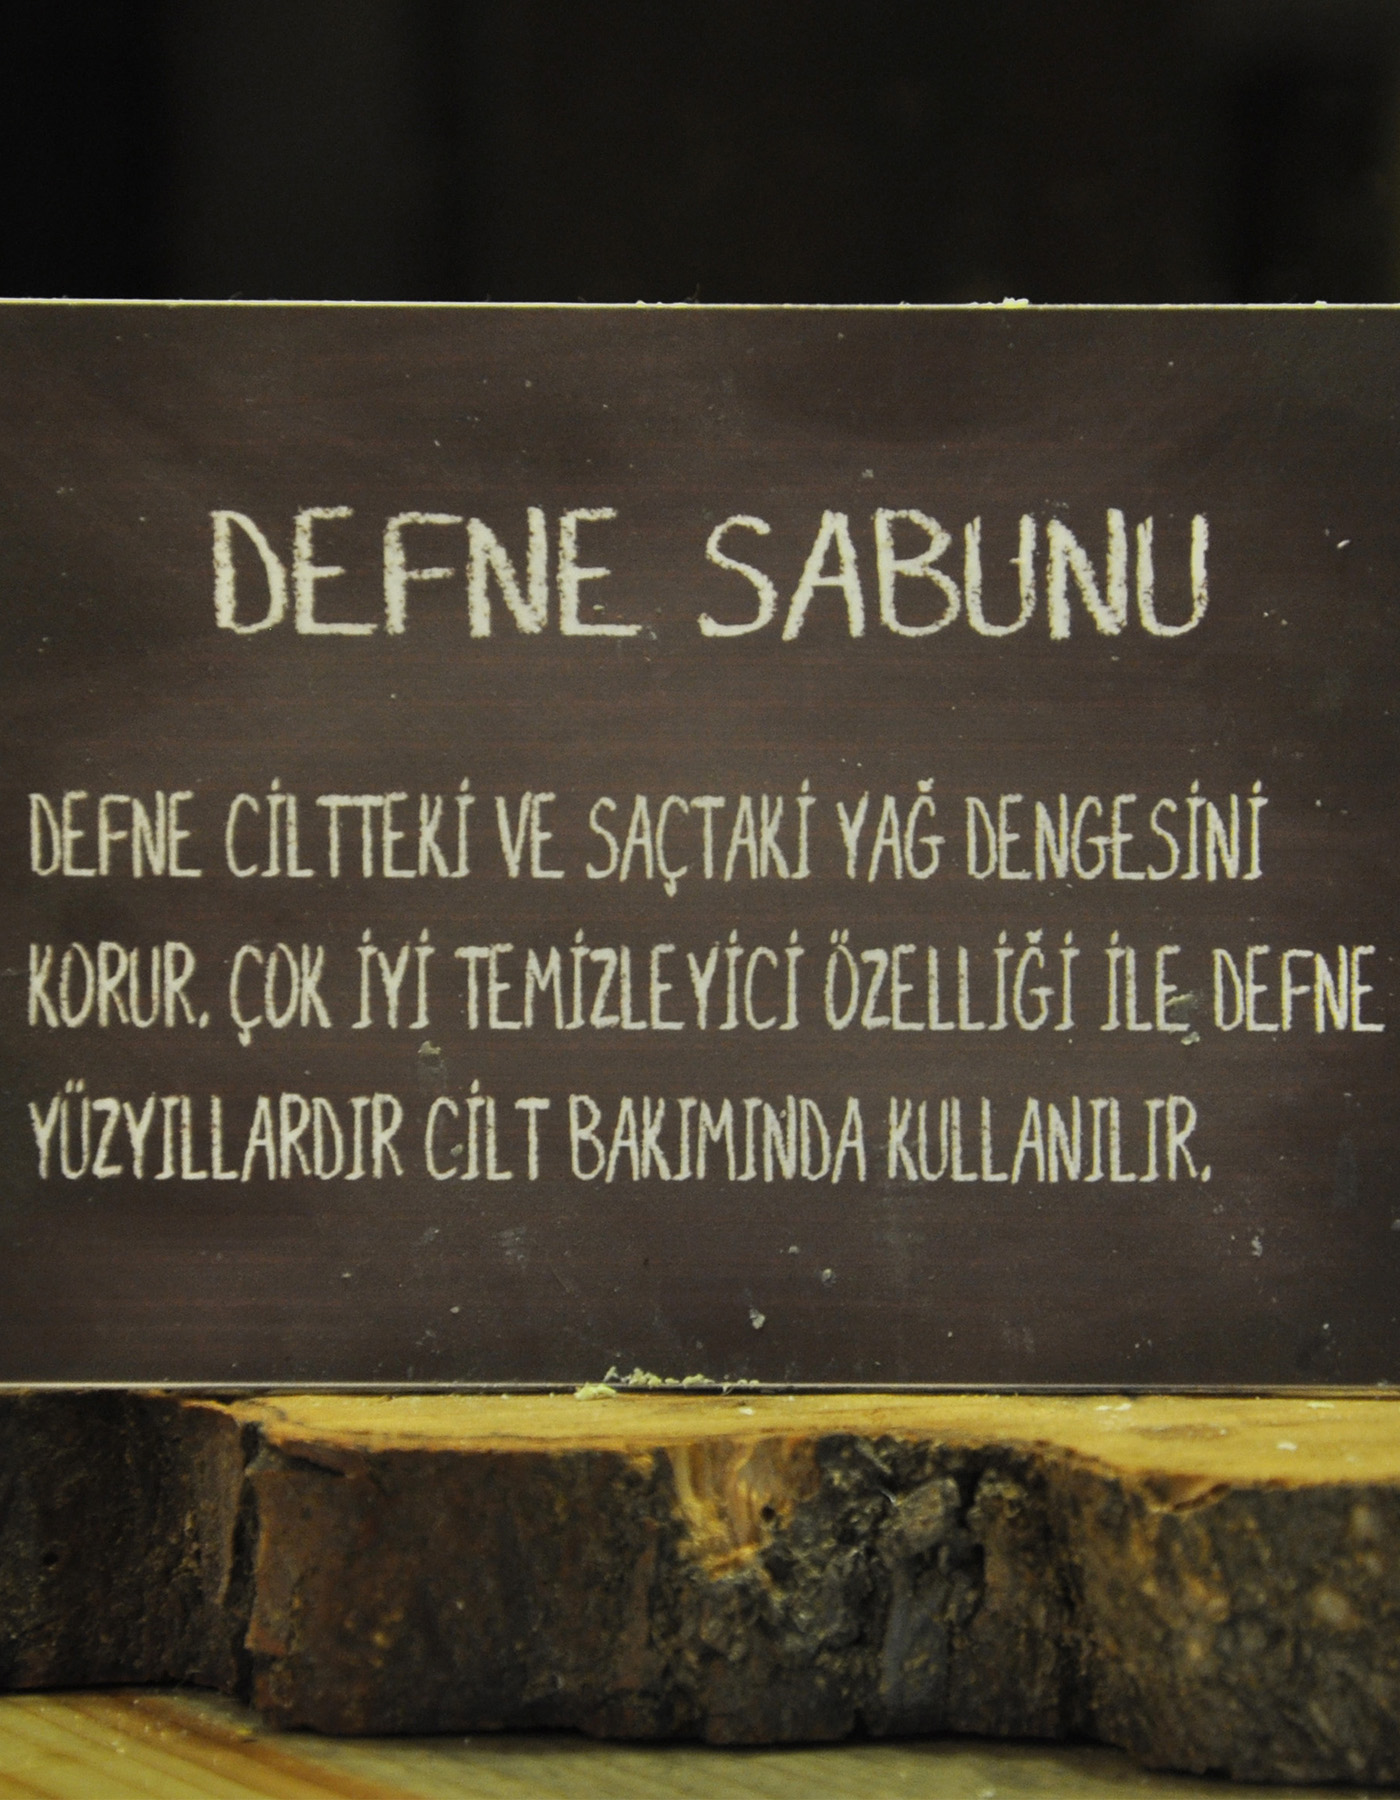 DEFNE SABUNU
DEFNE CİLTTEKİ VE SAÇTAKİ YAĞ DENGESİNİ
KORUR. ÇOK İYİ TEMİZLEYİCİ ÖZELLİĞİ İLE DEFNE
YÜZYILLARDIR CİLT BAKIMINDA KULLANILIR.